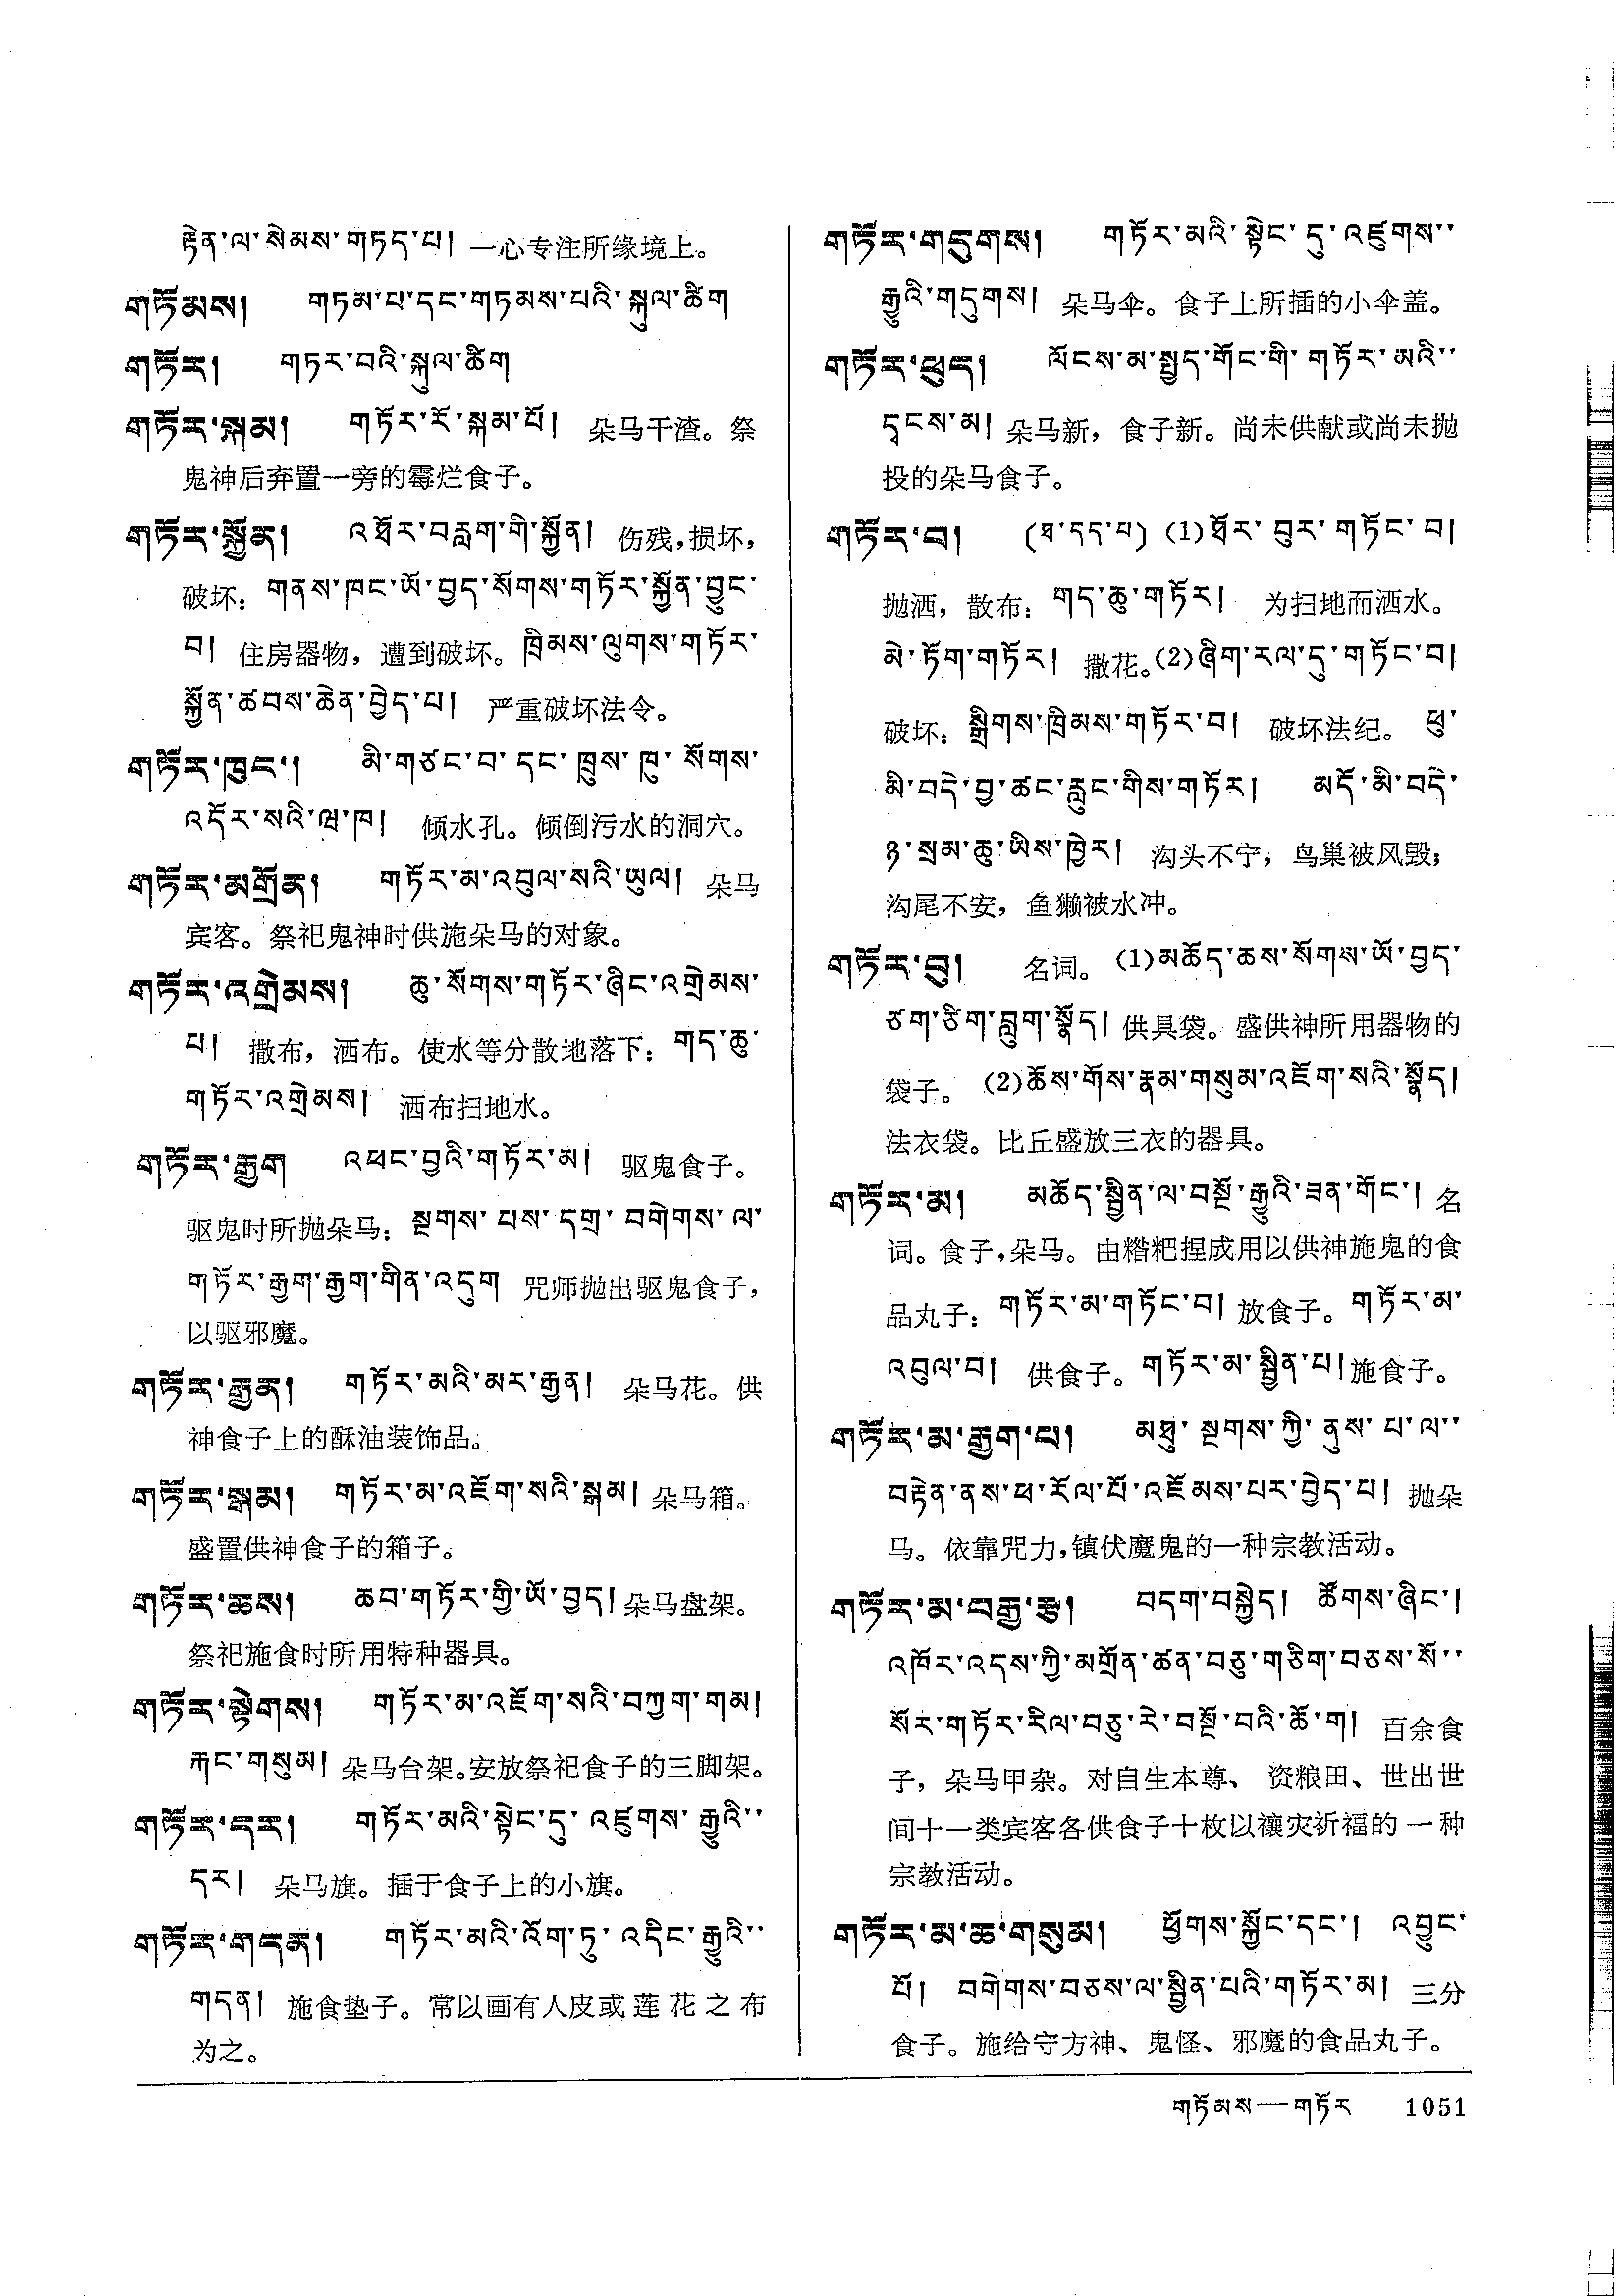 རྟེན་ལ་སེམས་གཏད་པ། 一心专注所缘境上。
གཏོམས། གཏམ་པ་དང་གཏམས་པའི་སྐུལ་ཚིག
གཏོར། གཏར་བའི་སྐུལ་ཚིག
གཏོར་སྐམ། གཏོར་རོ་སྐམ་པོ། 朵马干渣。祭
鬼神后弃置一旁的霉烂食子。
གཏོར་སྐྱོན། འཐོར་བརླག་གི་སྐྱོན། 伤残，损坏，
破坏：གནས་ཁང་ཡོ་བྱད་སོགས་གཏོར་སྐྱོན་བྱུང་
བ། 住房器物，遭到破坏。ཁྲིམས་ལུགས་གཏོར་
སྐྱོན་ཚབས་ཆེན་བྱེད་པ། 严重破坏法令。
གཏོར་ཁུང་། མི་གཙང་བ་དང་ཁྲུས་ཁུ་སོགས་
འདོར་སའི་ཝ་ཁ། 倾水孔。倾倒污水的洞穴。
གཏོར་མགྲོན། གཏོར་མ་འབུལ་སའི་ཡུལ། 朵马
宾客。祭祀鬼神时供施朵马的对象。
གཏོར་འགྲེམས། ཆུ་སོགས་གཏོར་ཞིང་འགྲེམས་
པ། 撒布，洒布。使水等分散地落下：གད་ཆུ་
གཏོར་འགྲེམས། 洒布扫地水。
གཏོར་རྒྱག འཕང་བྱའི་གཏོར་མ། 驱鬼食子。
驱鬼时所抛朵马：སྔགས་པས་དགྲ་བགེགས་ལ་
གཏོར་རྒྱག་རྒྱག་གིན་འདུག 咒师抛出驱鬼食子，
以驱邪魔。
གཏོར་རྒྱན། གཏོར་མའི་མར་རྒྱན། 朵马花。供
神食子上的酥油装饰品。
གཏོར་སྒམ། གཏོར་མ་འཇོག་སའི་སྒམ། 朵马箱。
盛置供神食子的箱子。
གཏོར་ཆས། ཆབ་གཏོར་གྱི་ཡོ་བྱད། 朵马盘架。
祭祀施食时所用特种器具。
གཏོར་སྟེགས། གཏོར་མ་འཇོག་སའི་བཀྱག་གམ།
རྐང་གསུམ། 朵马台架。安放祭祀食子的三脚架。
གཏོར་དར། གཏོར་མའི་སྟེང་དུ་འཛུགས་རྒྱུའི་་
དར། 朵马旗。插于食子上的小旗。
གཏོར་གདན། གཏོར་མའི་འོག་ཏུ་འདིང་རྒྱུའི་་
གདན། 施食垫子。常以画有人皮或莲花之布
为之。
གཏོར་གདུགས། གཏོར་མའི་སྟེང་དུ་འཛུགས་་
རྒྱུའི་གདུགས། 朵马伞。食子上所插的小伞盖。
གཏོར་ཕུད། ལོངས་མ་སྤྱད་གོང་གི་གཏོར་མའི་་
དྭངས་མ། 朵马新，食子新。尚未供献或尚未抛
投的朵马食子。
གཏོར་བ། (ཐ་དད་པ) (1)ཐོར་བུར་གཏོང་བ།
抛洒，散布：གད་ཆུ་གཏོར། 为扫地而洒水。
མེ་ཏོག་གཏོར། 撒花。(2)ཞིག་རལ་དུ་གཏོང་བ།
破坏：སྒྲིགས་ཁྲིམས་གཏོར་བ། 破坏法纪。 ཕུ་
མི་བདེ་བྱ་ཚང་རླུང་གིས་གཏོར། མདོ་མི་བདེ་
ཉ་སྲམ་ཆུ་ཡིས་ཁྱེར། 沟头不宁，鸟巢被风毁；
沟尾不安，鱼獭被水冲。
གཏོར་བུ། 名词。(1)མཆོད་ཆས་སོགས་ཡོ་བྱད་
ཙག་ཙིག་བླུག་སྣོད། 供具袋。盛供神所用器物的
袋子。(2)ཆོས་གོས་རྣམ་གསུམ་འཇོག་སའི་སྣོད།
法衣袋。比丘盛放三衣的器具。
གཏོར་མ། མཆོད་སྦྱིན་ལ་བསྔོ་རྒྱུའི་ཟན་གོང་། 名
词。食子，朵马。由糌粑捏成用以供神施鬼的食
品丸子：གཏོར་མ་གཏོང་བ། 放食子。གཏོར་མ་
འབུལ་བ། 供食子。གཏོར་མ་སྦྱིན་པ། 施食子。
གཏོར་མ་རྒྱག་པ། མཐུ་སྔགས་ཀྱི་ནུས་པ་ལ་་
བརྟེན་ནས་ཕ་རོལ་པོ་འཇོམས་པར་བྱེད་པ། 抛朵
马。依靠咒力，镇伏魔鬼的一种宗教活动。
གཏོར་མ་བརྒྱ་རྩ། བདག་བསྐྱེད། ཚོགས་ཞིང་།
འཁོར་འདས་ཀྱི་མགྲོན་ཚན་བཅུ་གཅིག་བཅས་སོ་་
སོར་གཏོར་རིལ་བཅུ་རེ་བསྔོ་བའི་ཆོ་ག། 百余食
子，朵马甲杂。对自生本尊、资粮田、世出世
间十一类宾客各供食子十枚以禳灾祈福的一种
宗教活动。
གཏོར་མ་ཆ་གསུམ། ཕྱོགས་སྐྱོང་དང་། འབྱུང་
པོ། བགེགས་བཅས་ལ་སྦྱིན་པའི་གཏོར་མ། 三分
食子。施给守方神、鬼怪、邪魔的食品丸子。
གཏོམས—གཏོར 1051